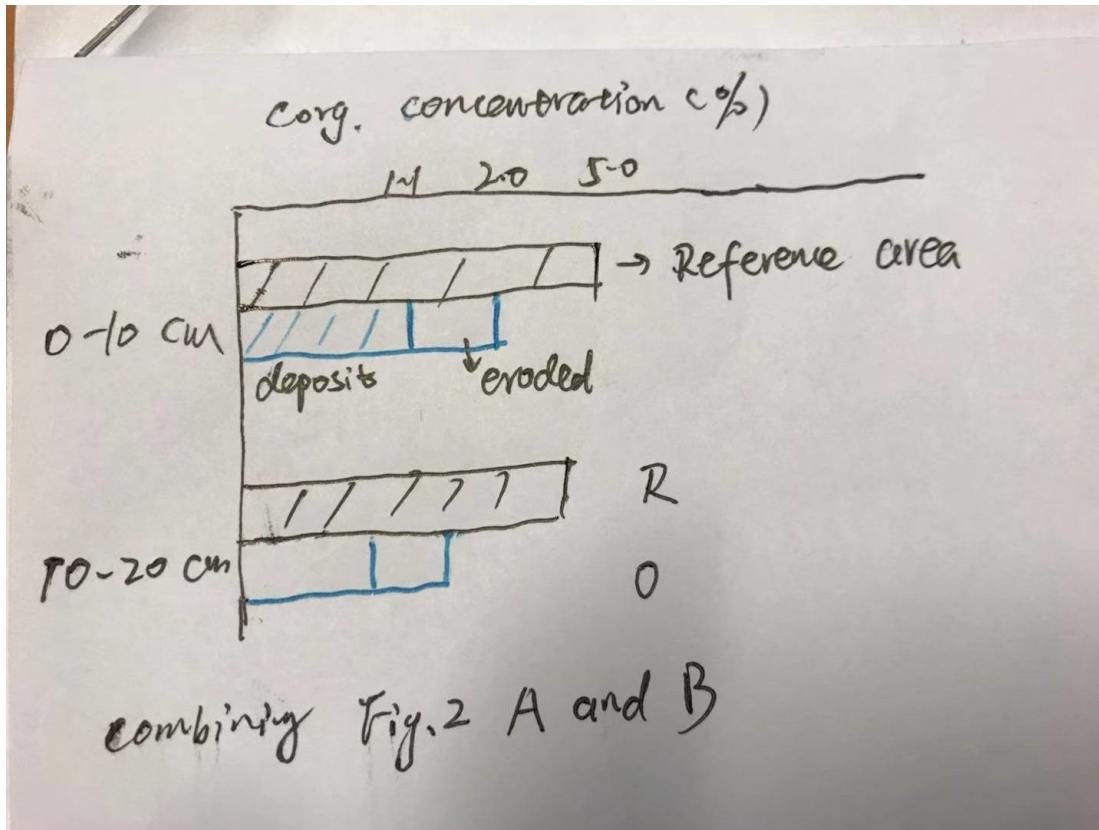 Corg. concentration (%)
1.1 2.0 5.0
→ Reference area
0-10 cm
deposit
eroded
R
10-20 cm
O
combining Fig.2 A and B